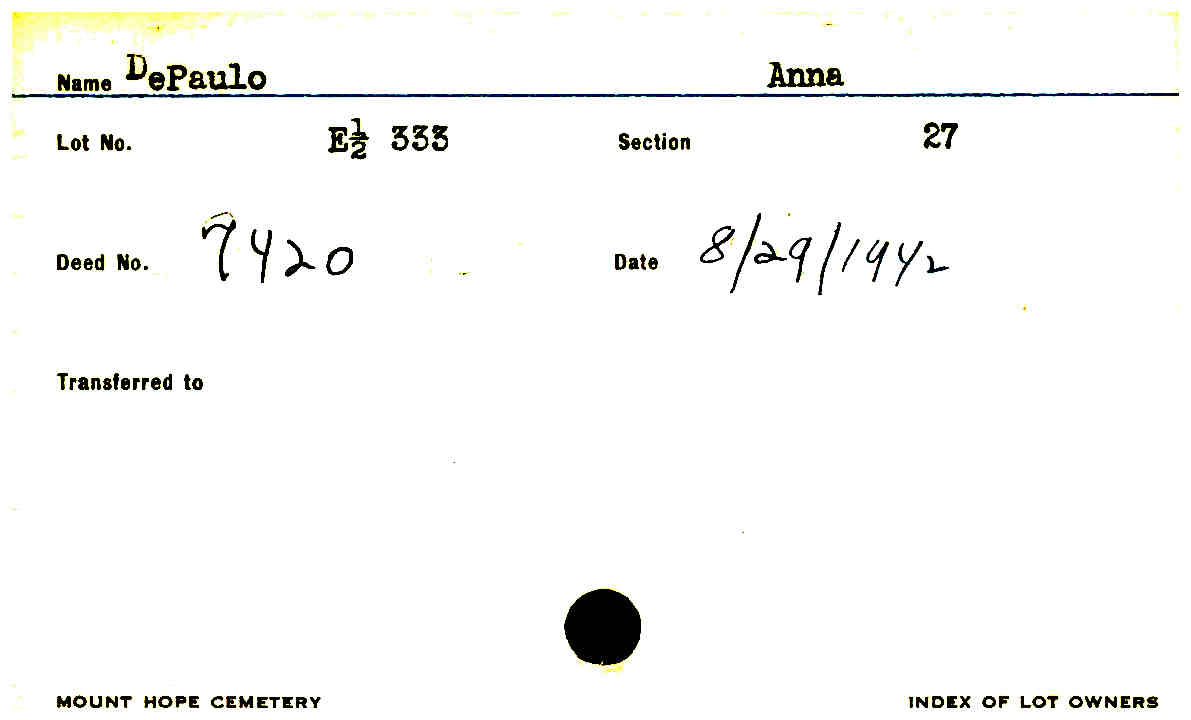 Name DePaulo Anna
Lot No. E½ 333 Section 27
Deed No. 7420 Date 8/29/1942
Transferred to
MOUNT HOPE CEMETERY INDEX OF LOT OWNERS